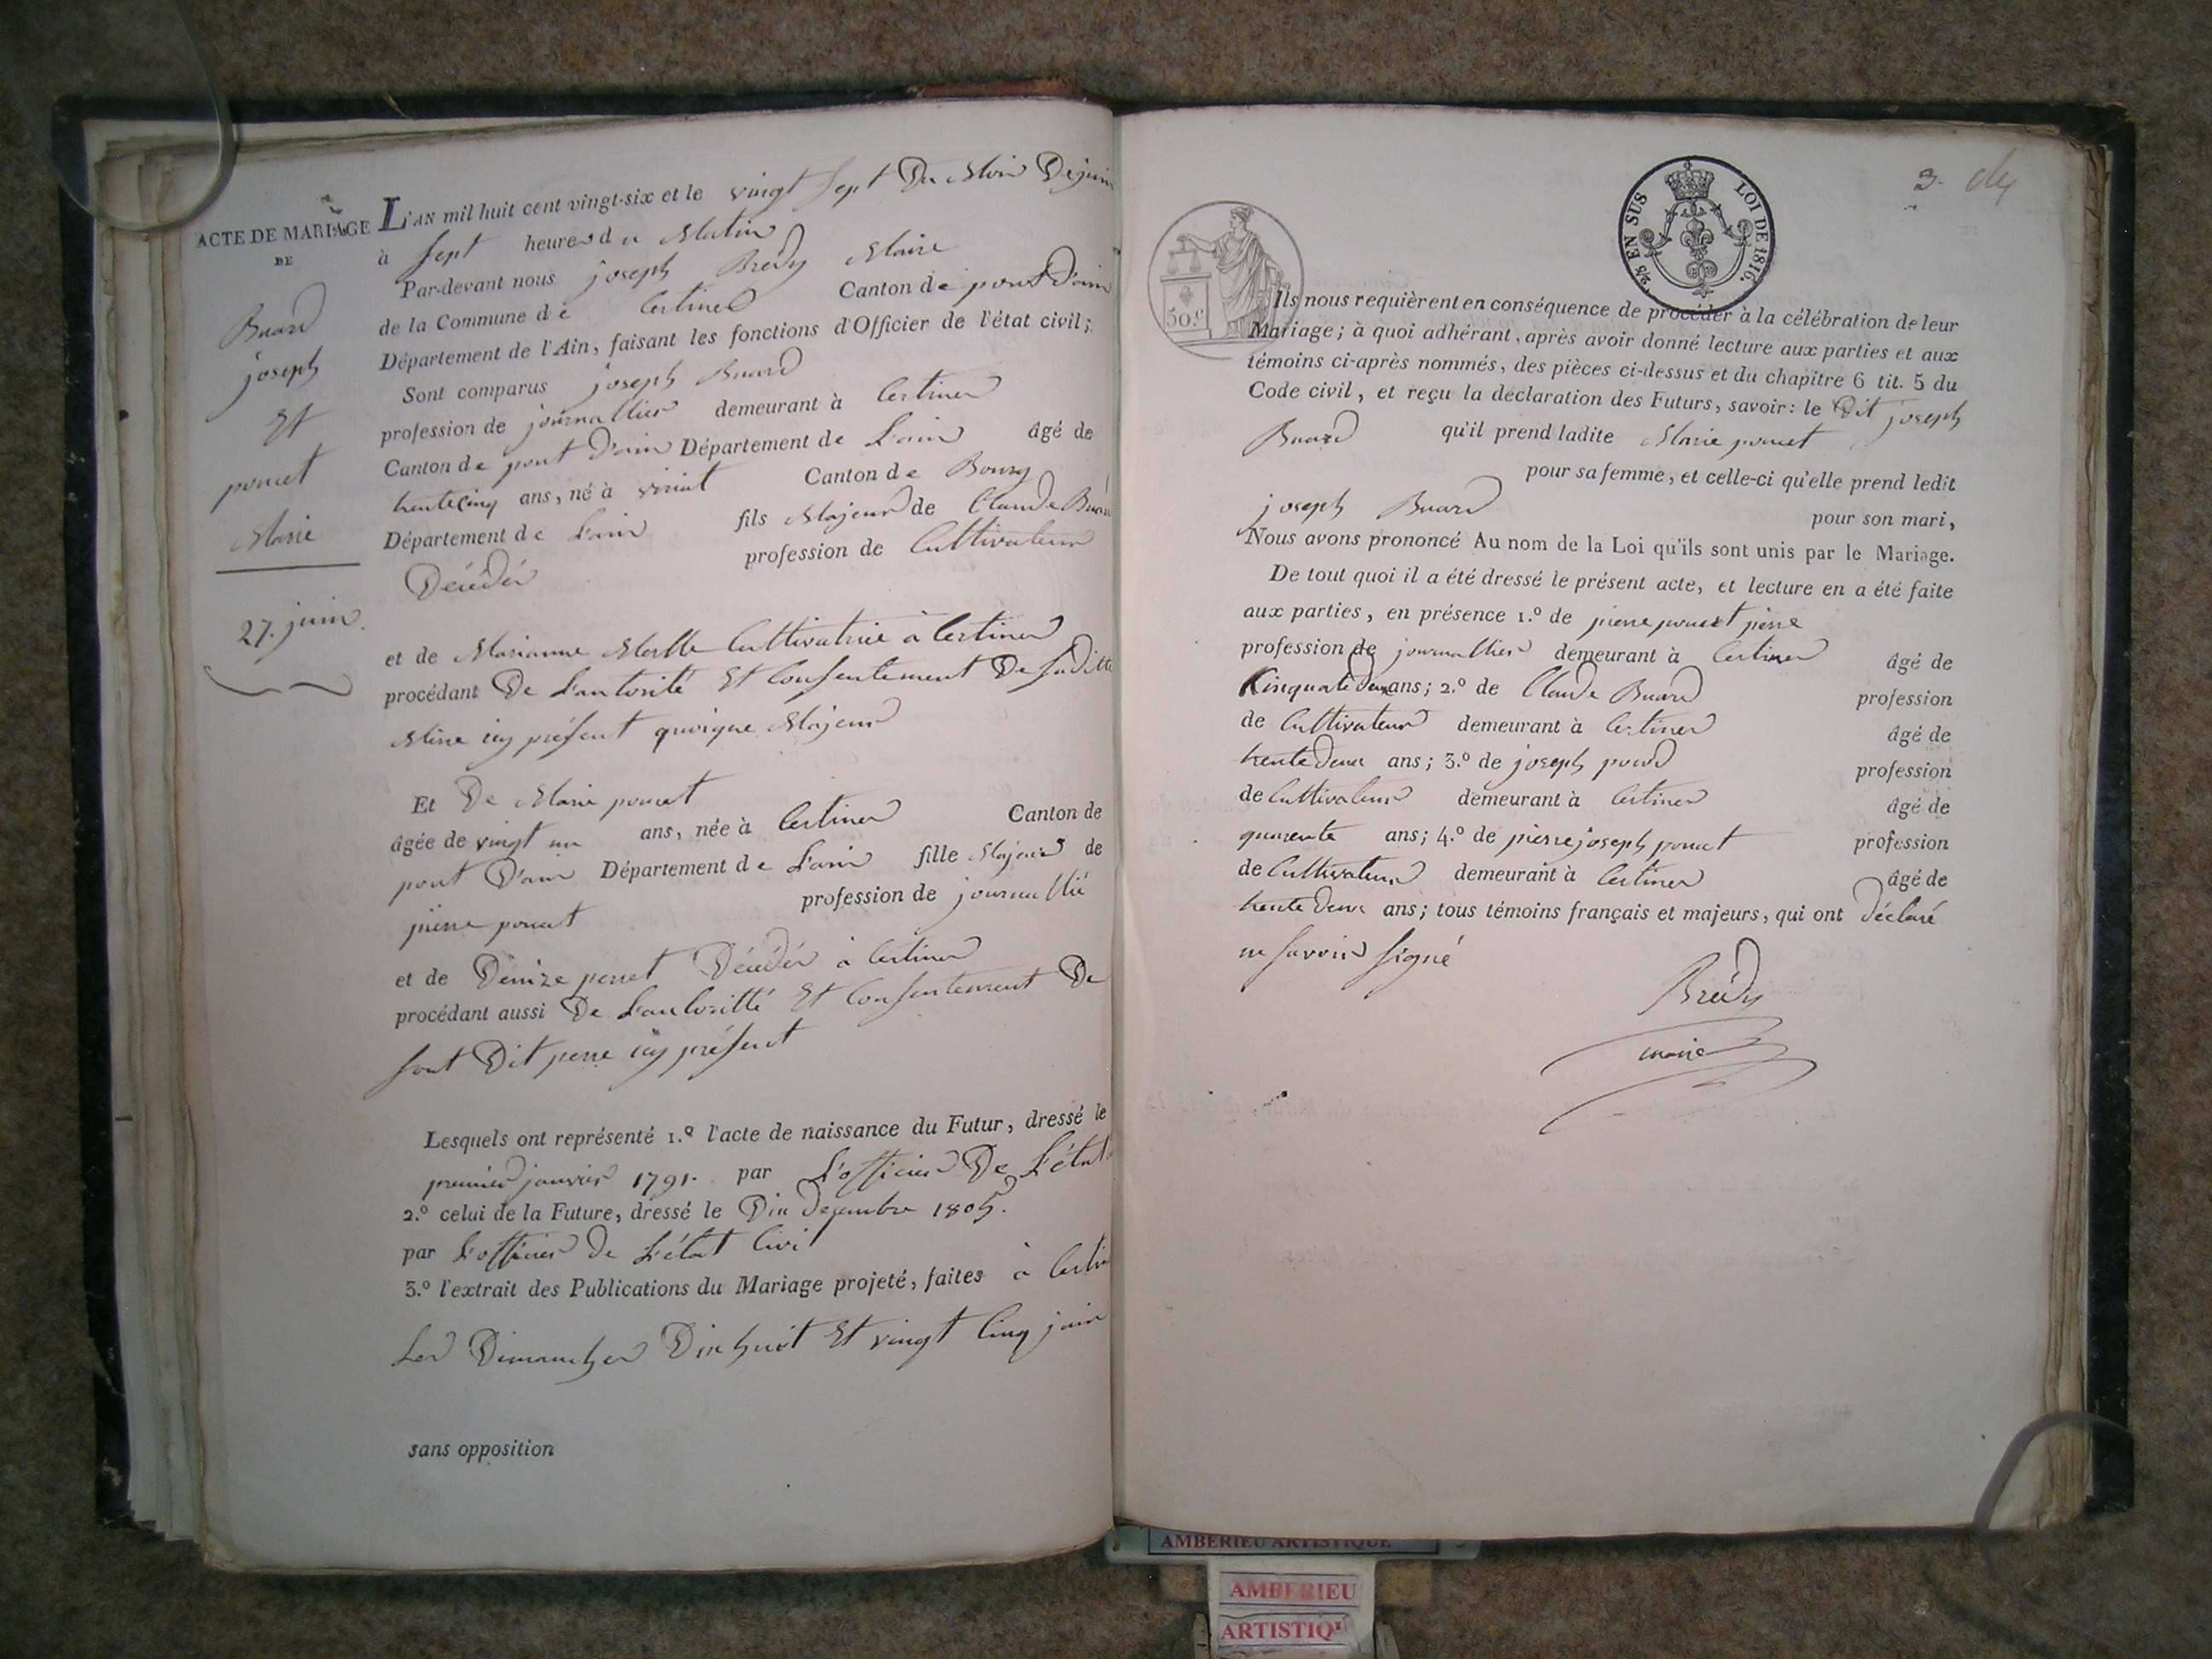 ACTE DE MARIAGE
DE
Buard
joseph
Et
poncet
Marie
27. juin.
L'AN mil huit cent vingt-six et le vingt sept Du Mois De juin
à sept heures du Matin
Par-devant nous joseph Bredy Maire
de la Commune de Certines Canton de pont D'ain
Département de l'Ain, faisant les fonctions d'Officier de l'état civil;
Sont comparus joseph Buard
profession de journallier demeurant à Certines
Canton de pont D'ain Département de L'ain âgé de
trente cinq ans, né à Canton de Bourg
Département de L'ain fils Majeur de Claude Buard
profession de Cultivateur
Décédés
et de Marianne Merlle Cultivatrice à Certines
procédant De L'autorité Et Consentement De saditte
Mère icy présent quoique Majeur
Et De Marie poncet
âgée de vingt un ans, née à Certines Canton de
pont D'ain Département de L'ain fille Majeur de
pierre poncet profession de journallié
et de Denize perret Décédés à Certines
procédant aussi De L'autoritté Et Consentement De
sont Dit perre icy présent
Lesquels ont représenté 1.º l'acte de naissance du Futur, dressé le
premier janvier 1791. par L'officier De L'état
2.º celui de la Future, dressé le Dix Decembre 1805.
par L'officier De L'état Civil
3.º l'extrait des Publications du Mariage projeté, faites à Certin
Les Dimanches Dix huit Et vingt Cinq juin
sans opposition
3.
2/8 EN SUS LOI DE 1816.
50.c
Ils nous requièrent en conséquence de procéder à la célébration de leur
Mariage; à quoi adhérant, après avoir donné lecture aux parties et aux
témoins ci-après nommés, des pièces ci-dessus et du chapitre 6 tit. 5 du
Code civil, et reçu la déclaration des Futurs, savoir: le Dit joseph
Buard qu'il prend ladite Marie poncet
pour sa femme, et celle-ci qu'elle prend ledit
joseph Buard pour son mari,
Nous avons prononcé Au nom de la Loi qu'ils sont unis par le Mariage.
De tout quoi il a été dressé le présent acte, et lecture en a été faite
aux parties, en présence 1.º de pierre poncet perre
profession de journallier demeurant à Certines âgé de
Cinquate deux ans; 2.º de Claude Buard profession
de Cultivateur demeurant à Certines âgé de
trente deux ans; 3.º de joseph profession
de Cultivateur demeurant à Certines âgé de
quarente ans; 4.º de pierre joseph poncet profession
de Cultivateur demeurant à Certines âgé de
trente deux ans; tous témoins français et majeurs, qui ont déclaré
ne savoir signé
Brédy
maire
AMBERIEU ARTISTIQUE
AMBERIEU
ARTISTIQ